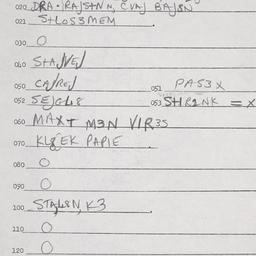 020 DRA·RAJSTNN, CVAJ BAJSN
021 S+LOS3MEM
030 O
040 STAJVEJ
050 CAJREJ 051 PA53X
052 SEJGL8 053 SHR2NK = X
060 MAXT M3N VIR35
070 KL8EK PAPIE
080 O
090 O
100 STAL8N, K3
110 O
120 O